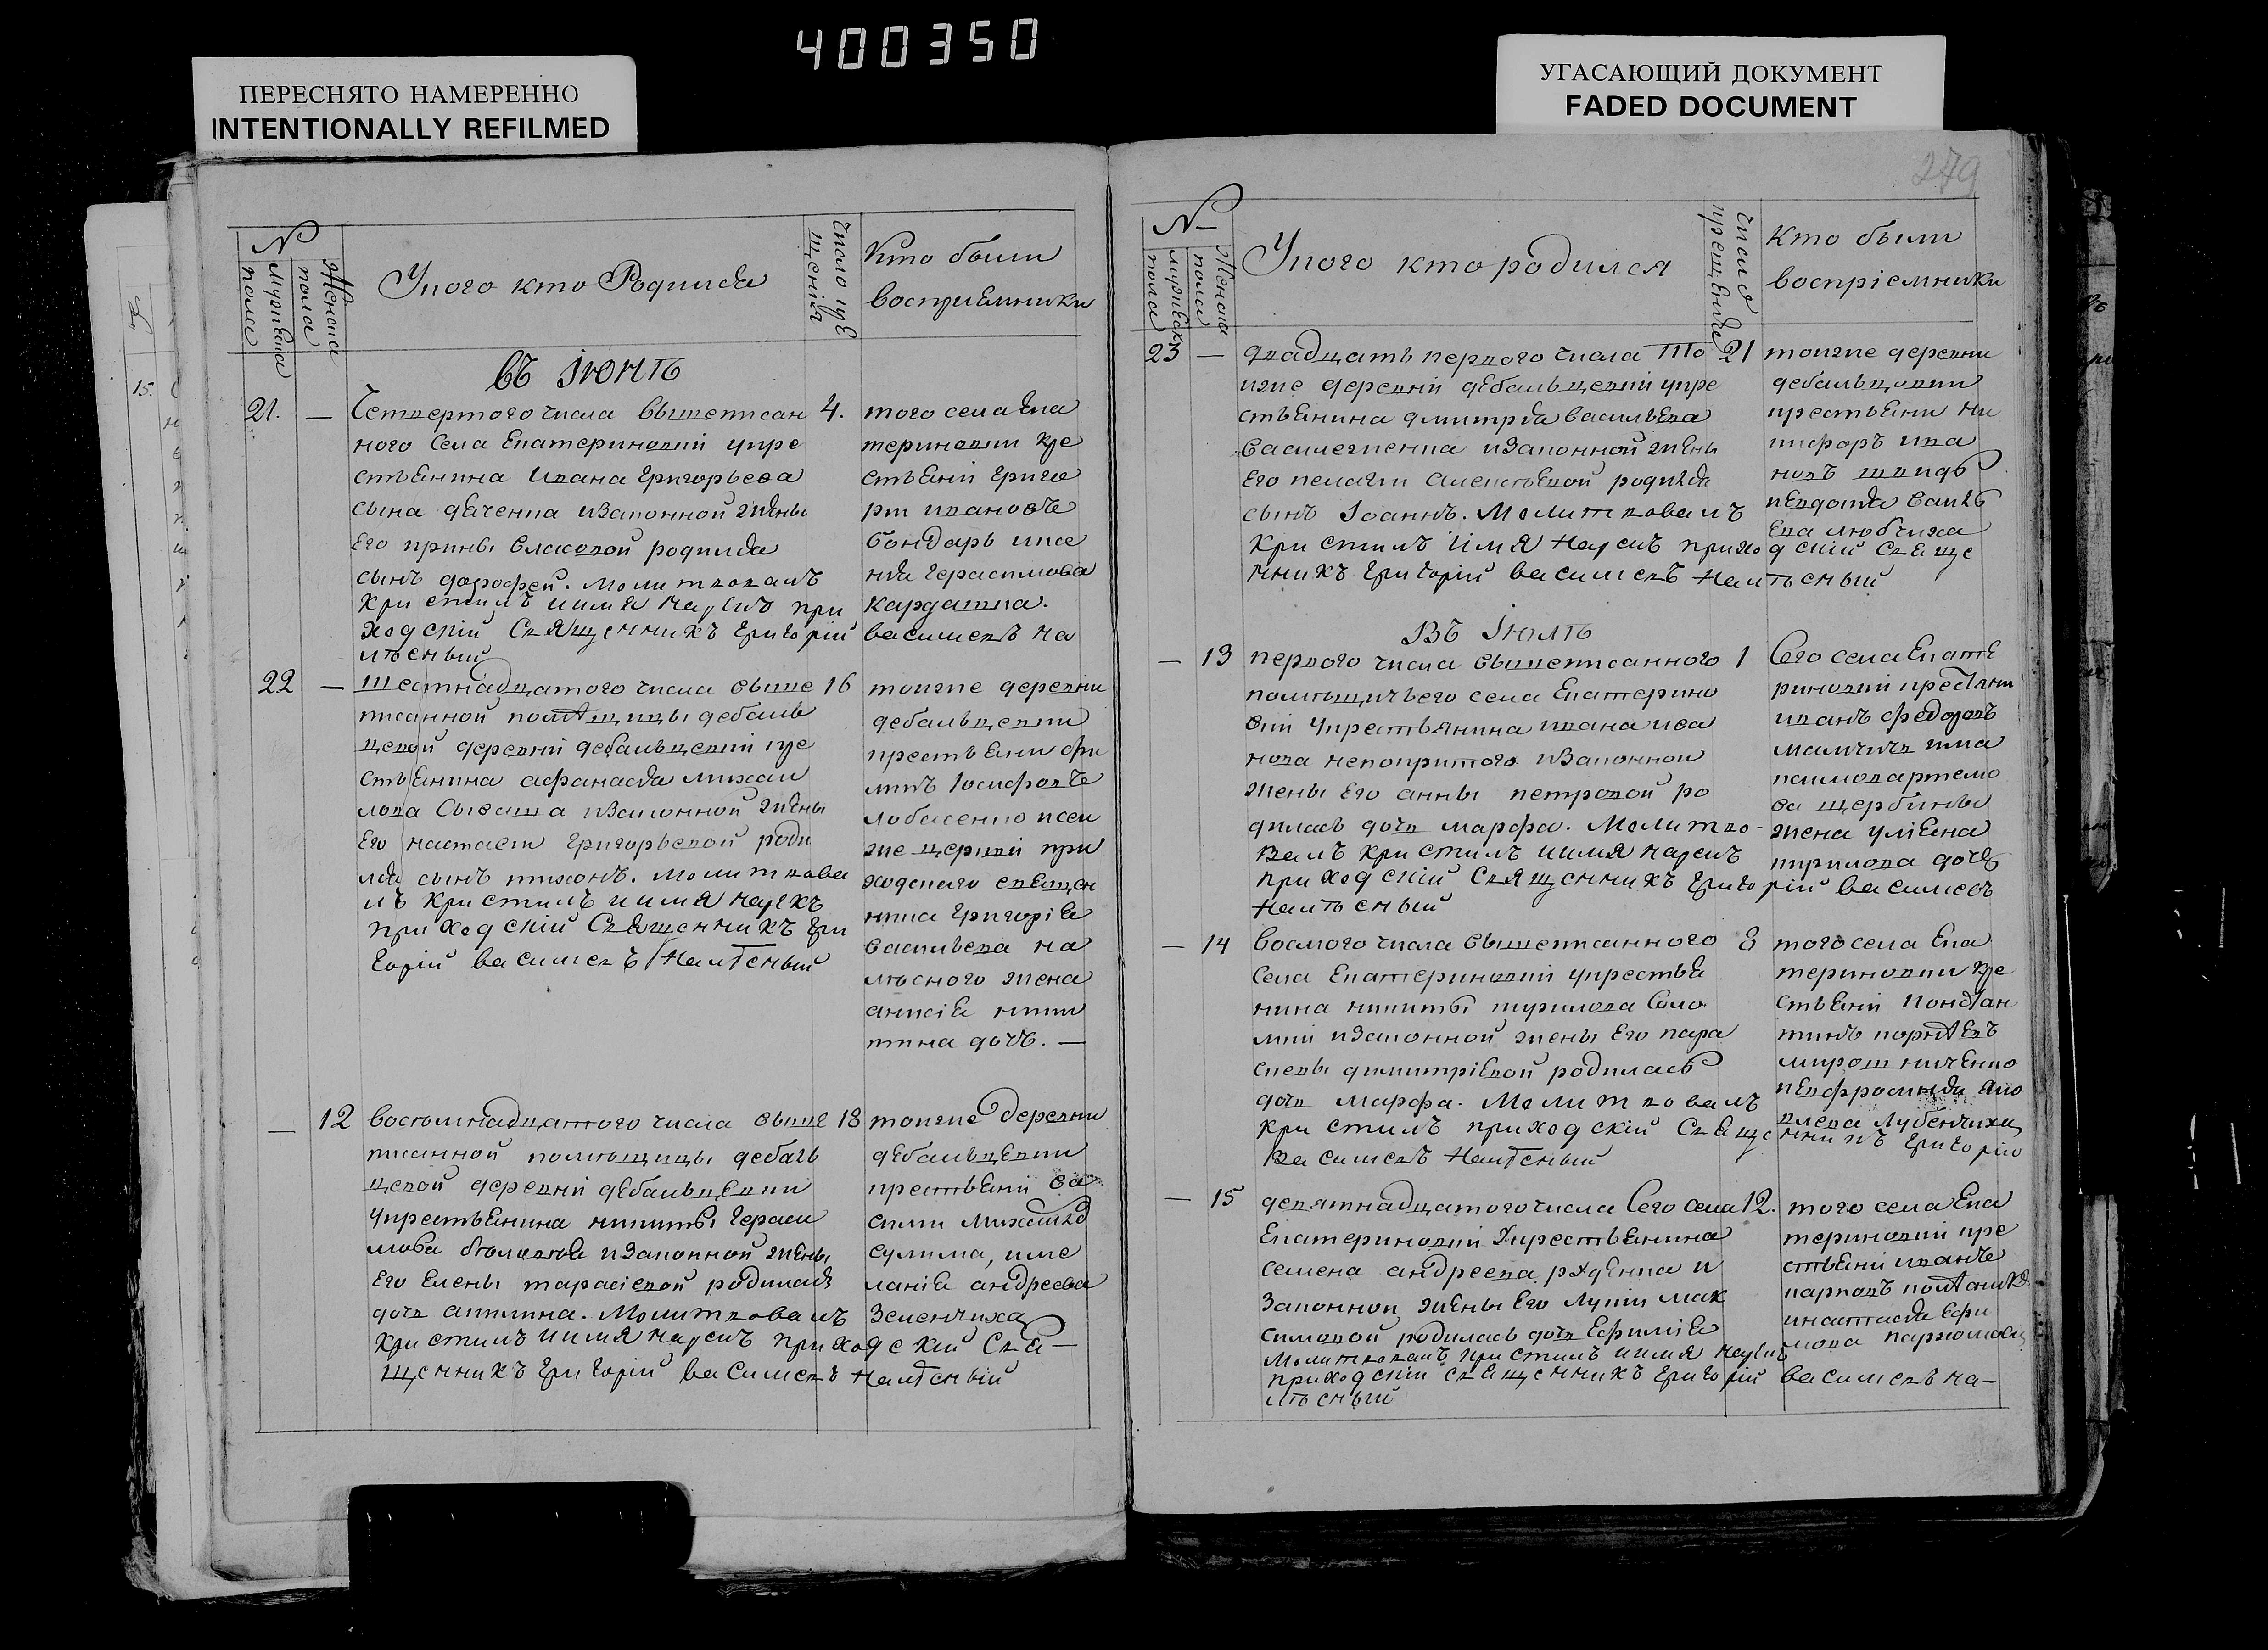 400350
ПЕРЕСНЯТО НАМЕРЕННО
INTENTIONALLY REFILMED
УГАСАЮЩИЙ ДОКУМЕНТ
FADED DOCUMENT
279
№
Мужеска пола
Женска пола
Унего кто Родился
Число кре щенія
Кто были
восприемники
въ Іюнѣ
21. — Четвертого числа вышеписан 4.
ного Села Екатериновки укре
стьянина Ивана Григорьева
сына дяченка изаконной жены
его ирины власовой родился
сынъ дорофей. Молитвовалъ
Кристилъ иимя нарекъ при
ходскій Священникъ Григорій
того села Ека
териновки кре
стьянинъ Григо
рій ивановъ
бондарь ивса
нія Герасимова
кардашка.
васильевъ На
лѣсный
22 — Шестнадцатого числа выше 16
писанной помѣщицы дебаль
цевой деревни дебальцевки кре
стьянина афанасія михаи
лова Сиваша изаконной жены
его настасіи Григорьевой роди
лся сынъ тихонъ. молитвова
лъ Кристилъ иимя нарекъ
приходскій Священникъ Гри
горій васильевъ Налѣсный
тоиже деревни
дебальцевки
крестьянинъ фи
липъ Іосифовъ
лобасенко исеи
же церкви при
ходского священ
ника Григорія
васильева на
лѣсного жена
анисія ники
тина дочь. —
— 12 восемнадцатого числа выше 18
писанной помѣщицы дебаль
цевой деревни дебальцевки
укрестьянина никиты Гераси
мова изаконной жены
его Елены тарасіевой родилася
дочь акилина. Молитвовалъ
Кристилъ иимя нарекъ приходскій Свя—
щенникъ Григорій васильевъ Налѣсный
тоиже деревни
дебальцевки
крестьянинъ ва
силій Михайловъ
сулима, име
ланія андреева
Зеленчиха
№
Мужеск пола
Женска пола
Унего кто родился
Число крещенія
кто были
воспріемники
23 — двадцать первого числа То 21
иже деревни дебальцевки укре
стьянина дмитрія васильева
василегженка изаконной жены
его пелагіи алексѣевой родился
сынъ Іоаннъ. Молитвовалъ
Кристилъ иимя нарекъ приходскій Свяще
нникъ Григорій васильевъ Налѣсный
тоиже деревни
дебальцовки
крестьянинъ ни
кифоръ ива
новъ швидь
иевдокія савел
ева любчиха
Въ Іюлѣ
— 13 первого числа вышеписанного 1
помѣщичьего села Екатерино
вки укрестьянина ивана ива
нова непокритого изаконной
жены его анны петровой ро
дилась дочь марфа. Молитво-
валъ Кристилъ иимя нарекъ
приходскій Священникъ Григорій васильевъ
Налѣсный
Сего села Екате
риновки крестьянинъ
иванъ федоровъ
мамчичъ ияка
кимова артемо
ва щербины
жена уліяна
кирилова дочь
— 14 восмого числа вышеписанного 8
Села Екатериновки укрестья
нина никиты кирилова Соло
мки изаконной жены его пара
сковы димитріевой родилась
дочь марфа. Молитвовалъ
Кристилъ приходскій Священникъ Григорій
Васильевъ Налѣсный
того села Ека
териновки кре
стьянинъ констан
тинъ корнѣевъ
мирошниченко
иефросинія яко
влева Лубенчиха
— 15 девятнадцатого числа Сего села 12.
Екатериновки Укрестьянина
семена андреева руденка и
Законной жены его Лукіи мак
симовой родилась дочь Ефимія
Молитвовалъ кристилъ иимя нарекъ
приходскій священникъ Григорій васильевъ На—
лѣсный
того села Ека
териновки кре
стьянинъ иванъ
карповъ
инастасія Ефи
мова пархомовъ